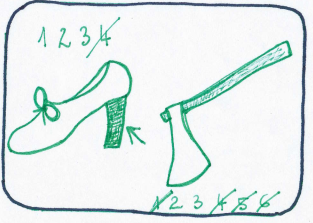 1 2 3 4
1 2 3 4 5 6